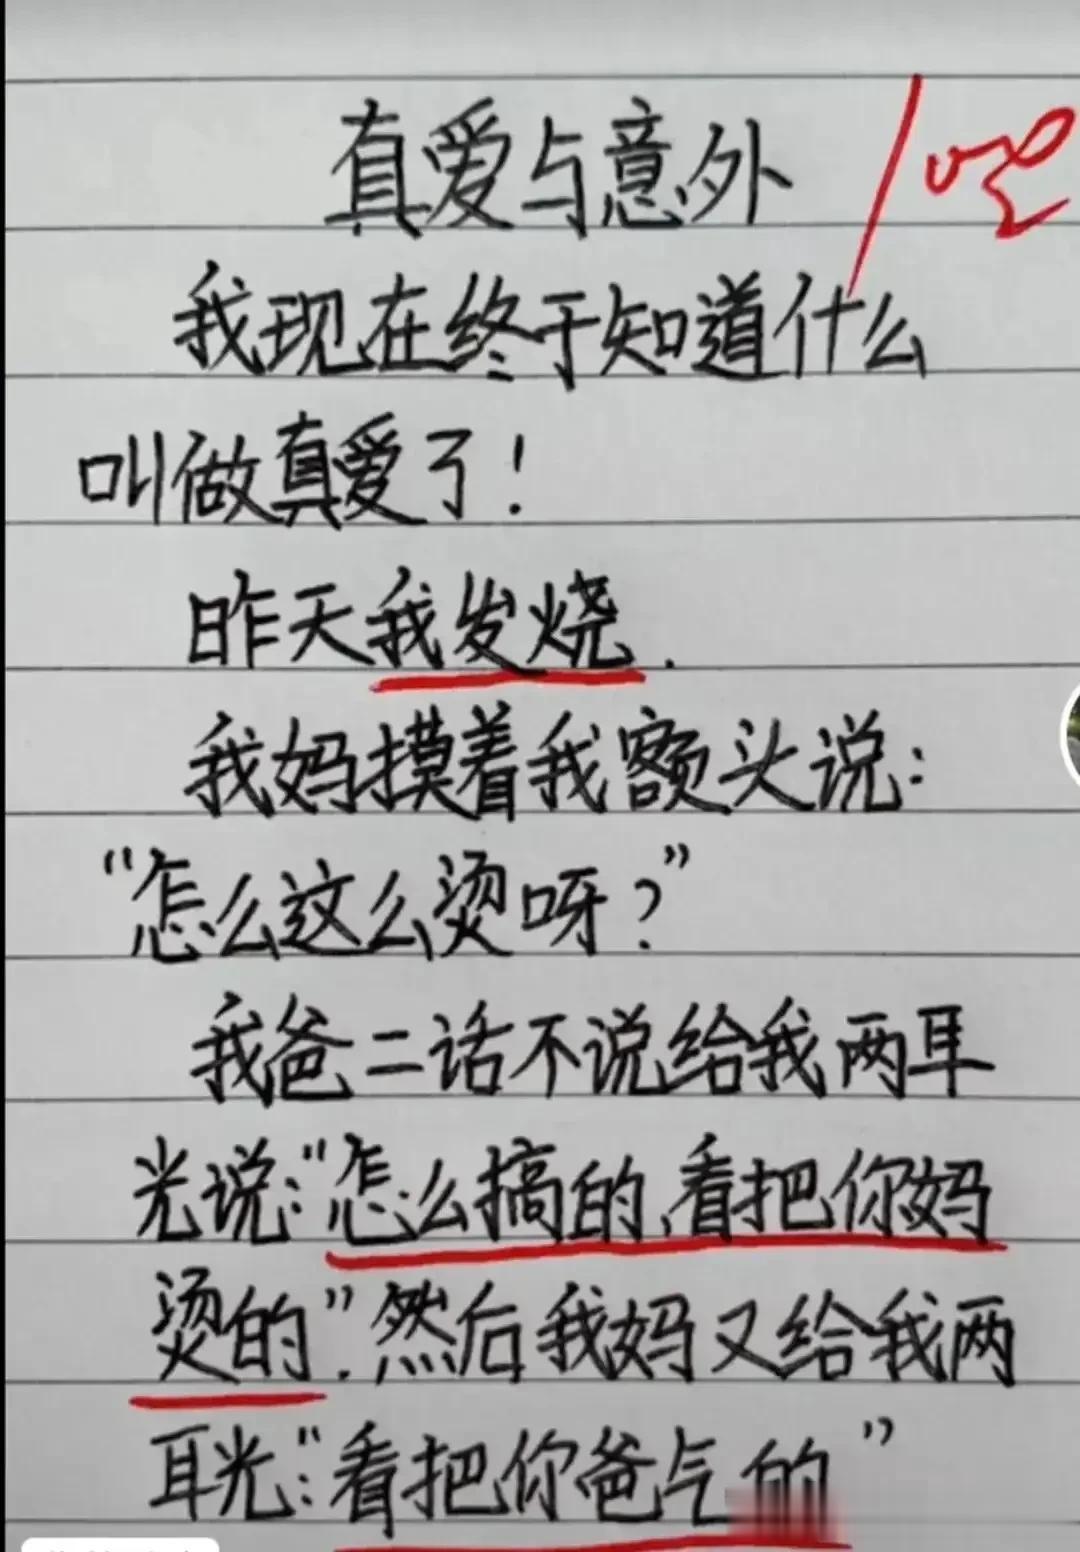 真爱与意外
我现在终于知道什么
叫做真爱了！
昨天我发烧.
我妈摸着我额头说：
“怎么这么烫呀？”
我爸二话不说给我两耳
光说：“怎么搞的、看把你妈
烫的”.然后我妈又给我两
耳光：“看把你爸气的”